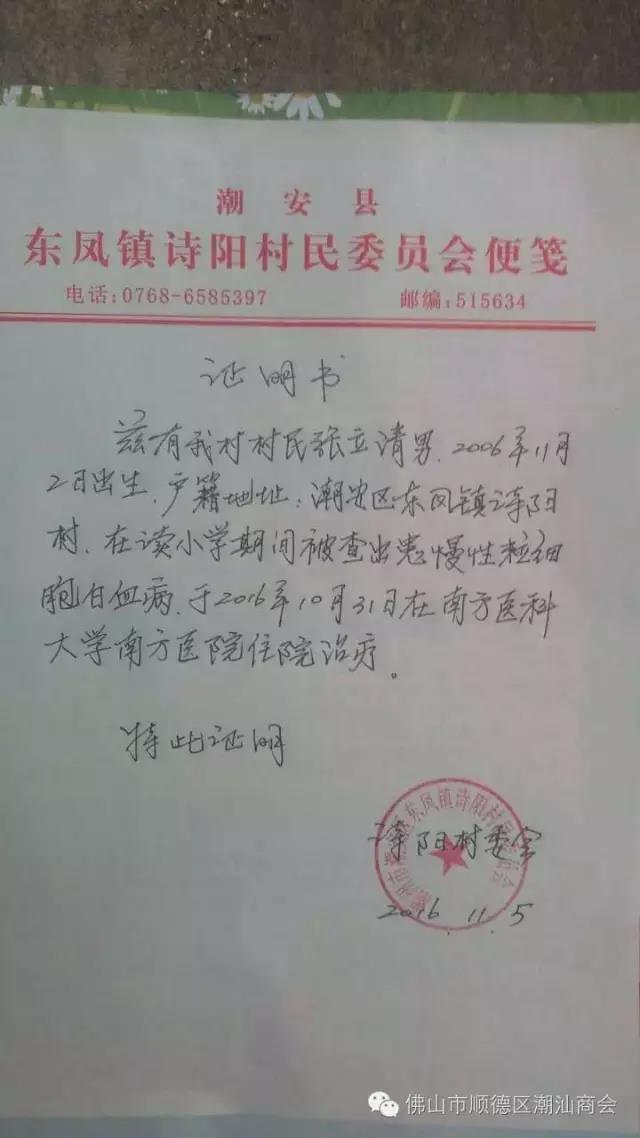 潮安县
东凤镇诗阳村民委员会便笺
电话:0768-6585397 邮编:515634
证明书
兹有我村村民张立清男,2006年11月
2日出生,户籍地址:潮安区东凤镇诗阳
村,在读小学期间被查出患慢性粒细
胞白血病,于2016年10月31日在南方医科
大学南方医院住院治疗。
特此证明
诗阳村委会
2016.11.5
潮州市潮安区东凤镇诗阳村民委员会
佛山市顺德区潮汕商会